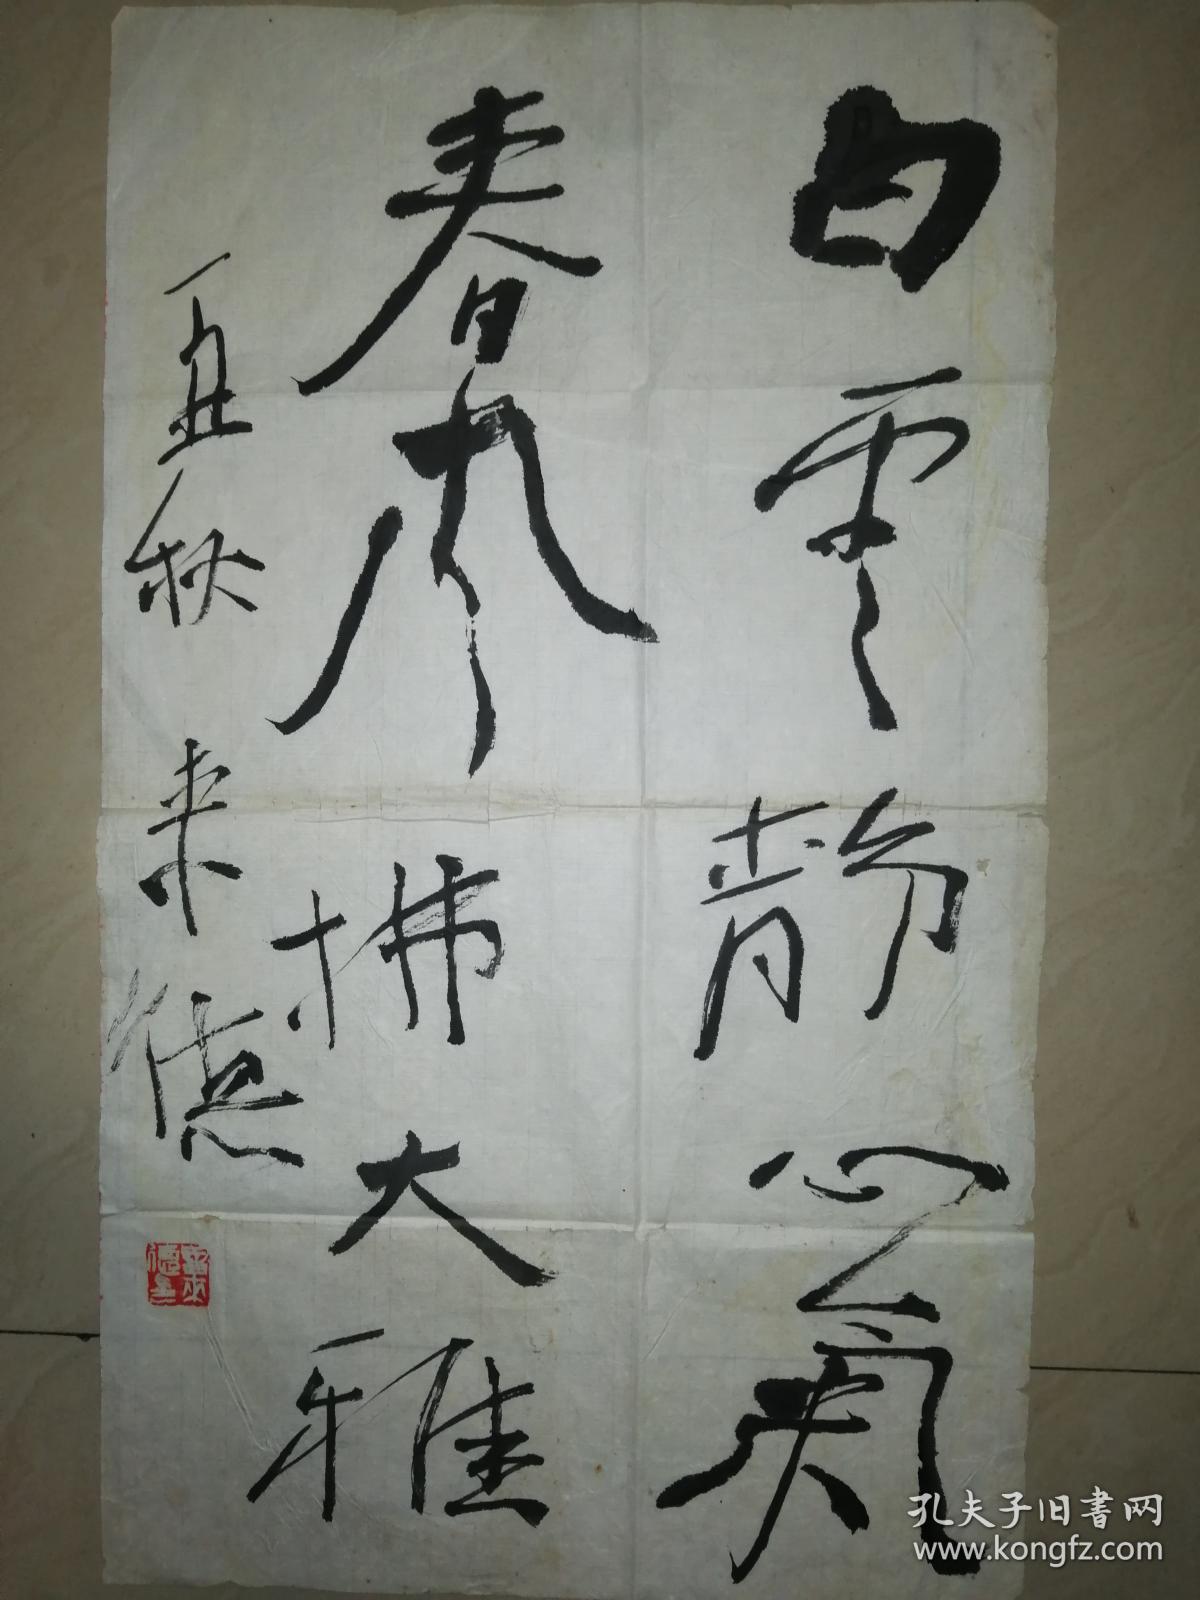 白雲静心氣
春風拂大雅
丁丑秋 来德
孔夫子旧书网
www.kongfz.com